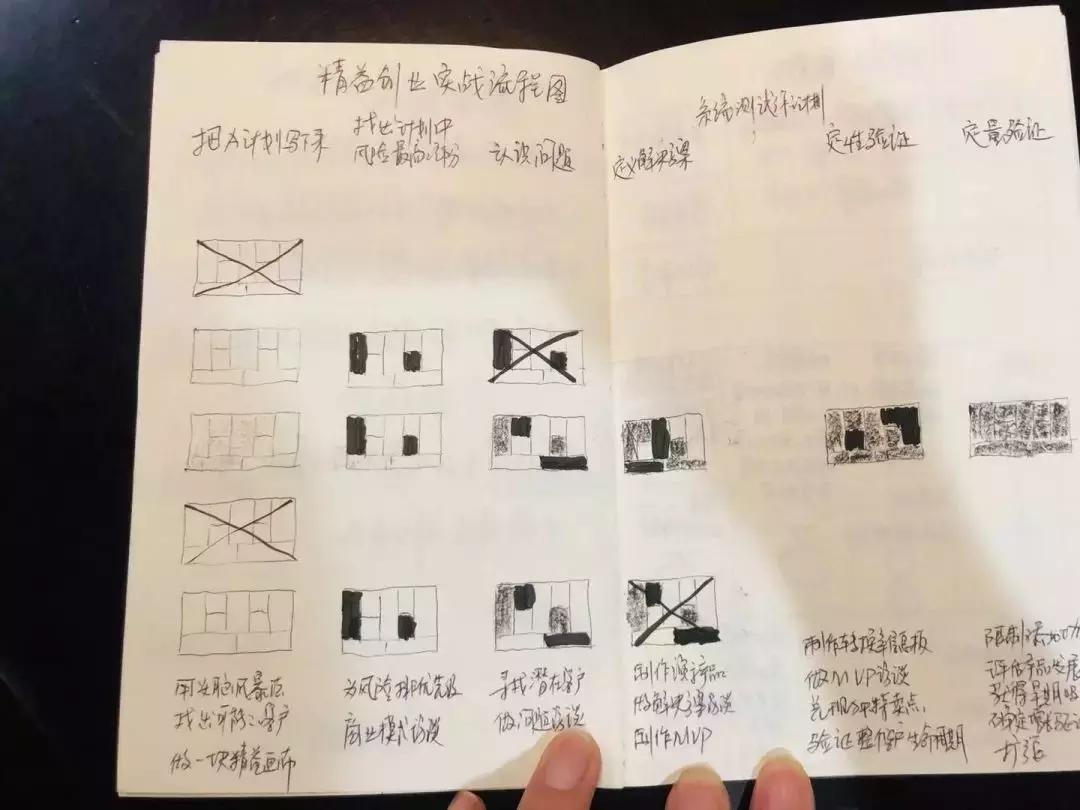 精益创业实战流程图
把A计划写下来
找出计划中
风险最高的部分
认识问题
用头脑风暴法
找出可能的客户
做一块精益画布
为风险排优先级
商业模式访谈
寻找潜在客户
做问题访谈
系统测试你的计划
定义解决方案
定性验证
定量验证
制作演示产品
做解决方案访谈
制作MVP
制作转换率看板
做MVP访谈
兑现独特卖点
验证整个客户生命周期
限制添加功
评估产品发展
获得早期
确定增长
扩张